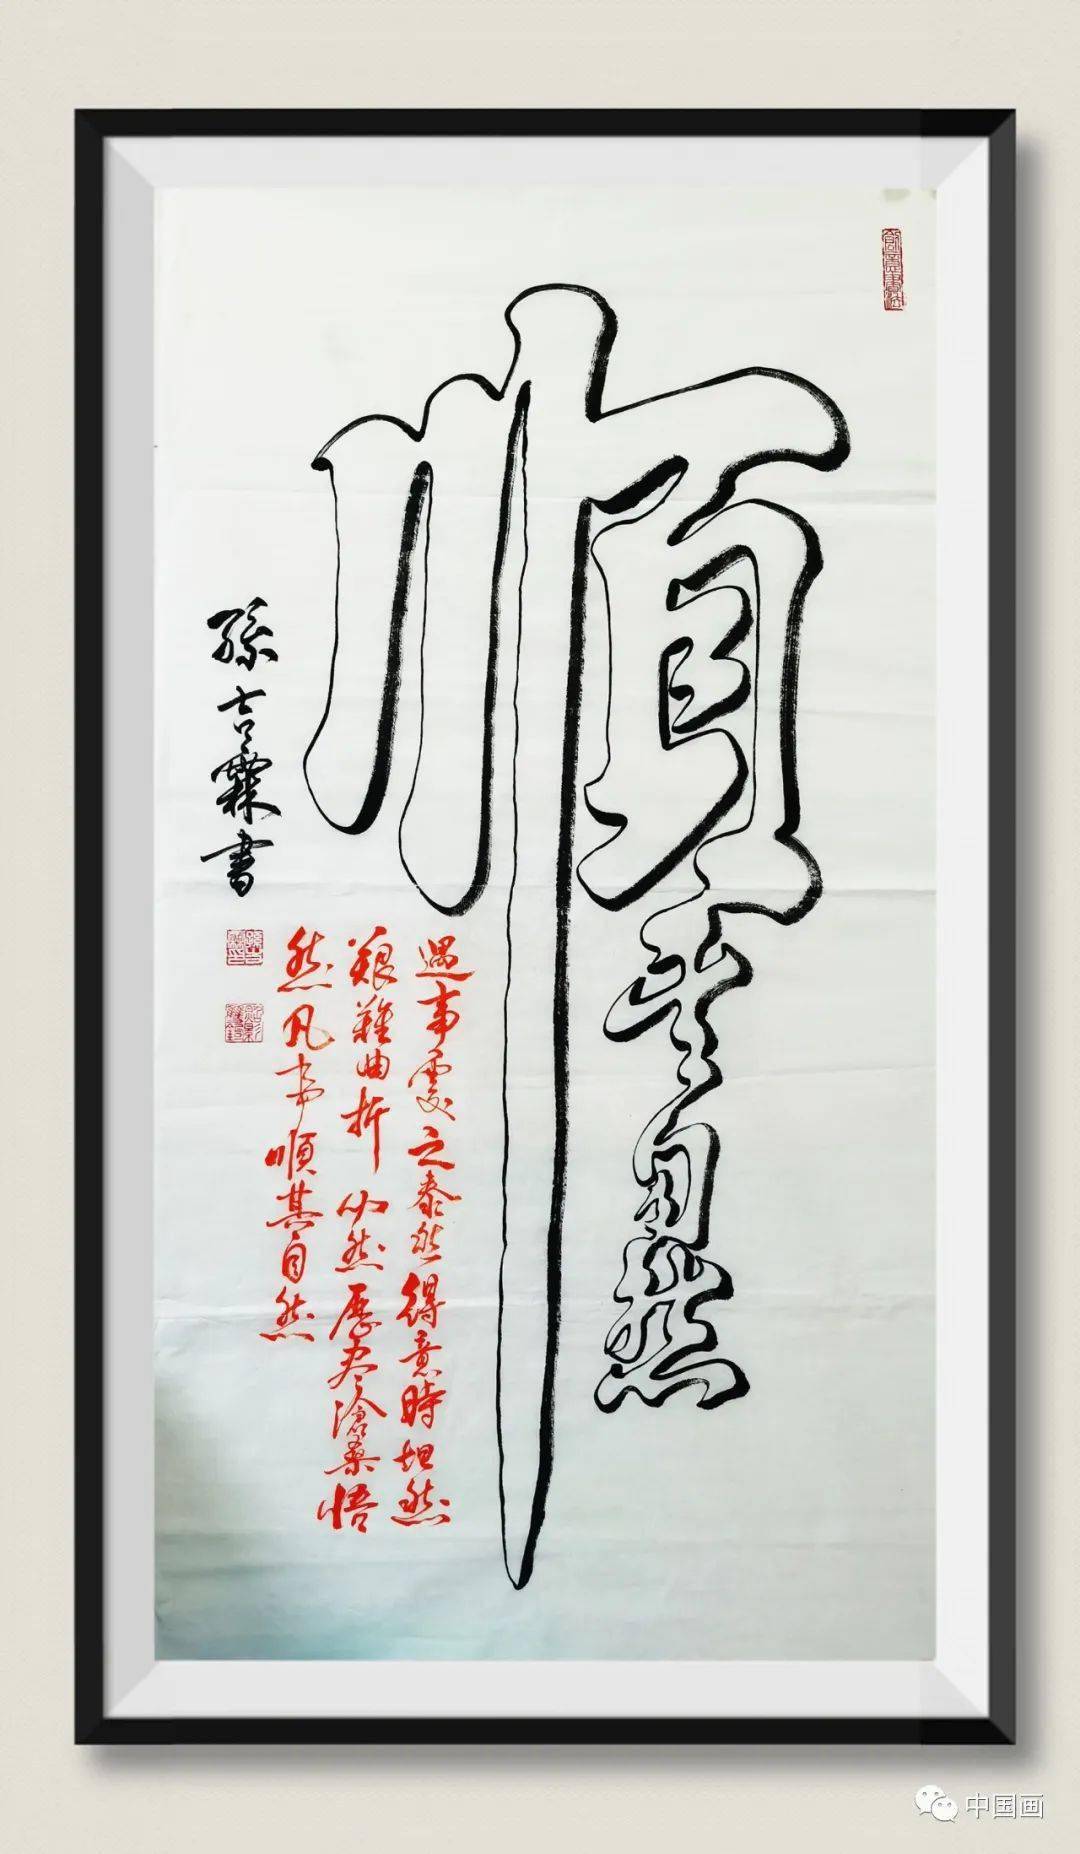 順其自然
遇事處之泰然得意時坦然
艱難曲折必然歷尽滄桑悟
然凡事順其自然
孫吉霖書
中国画